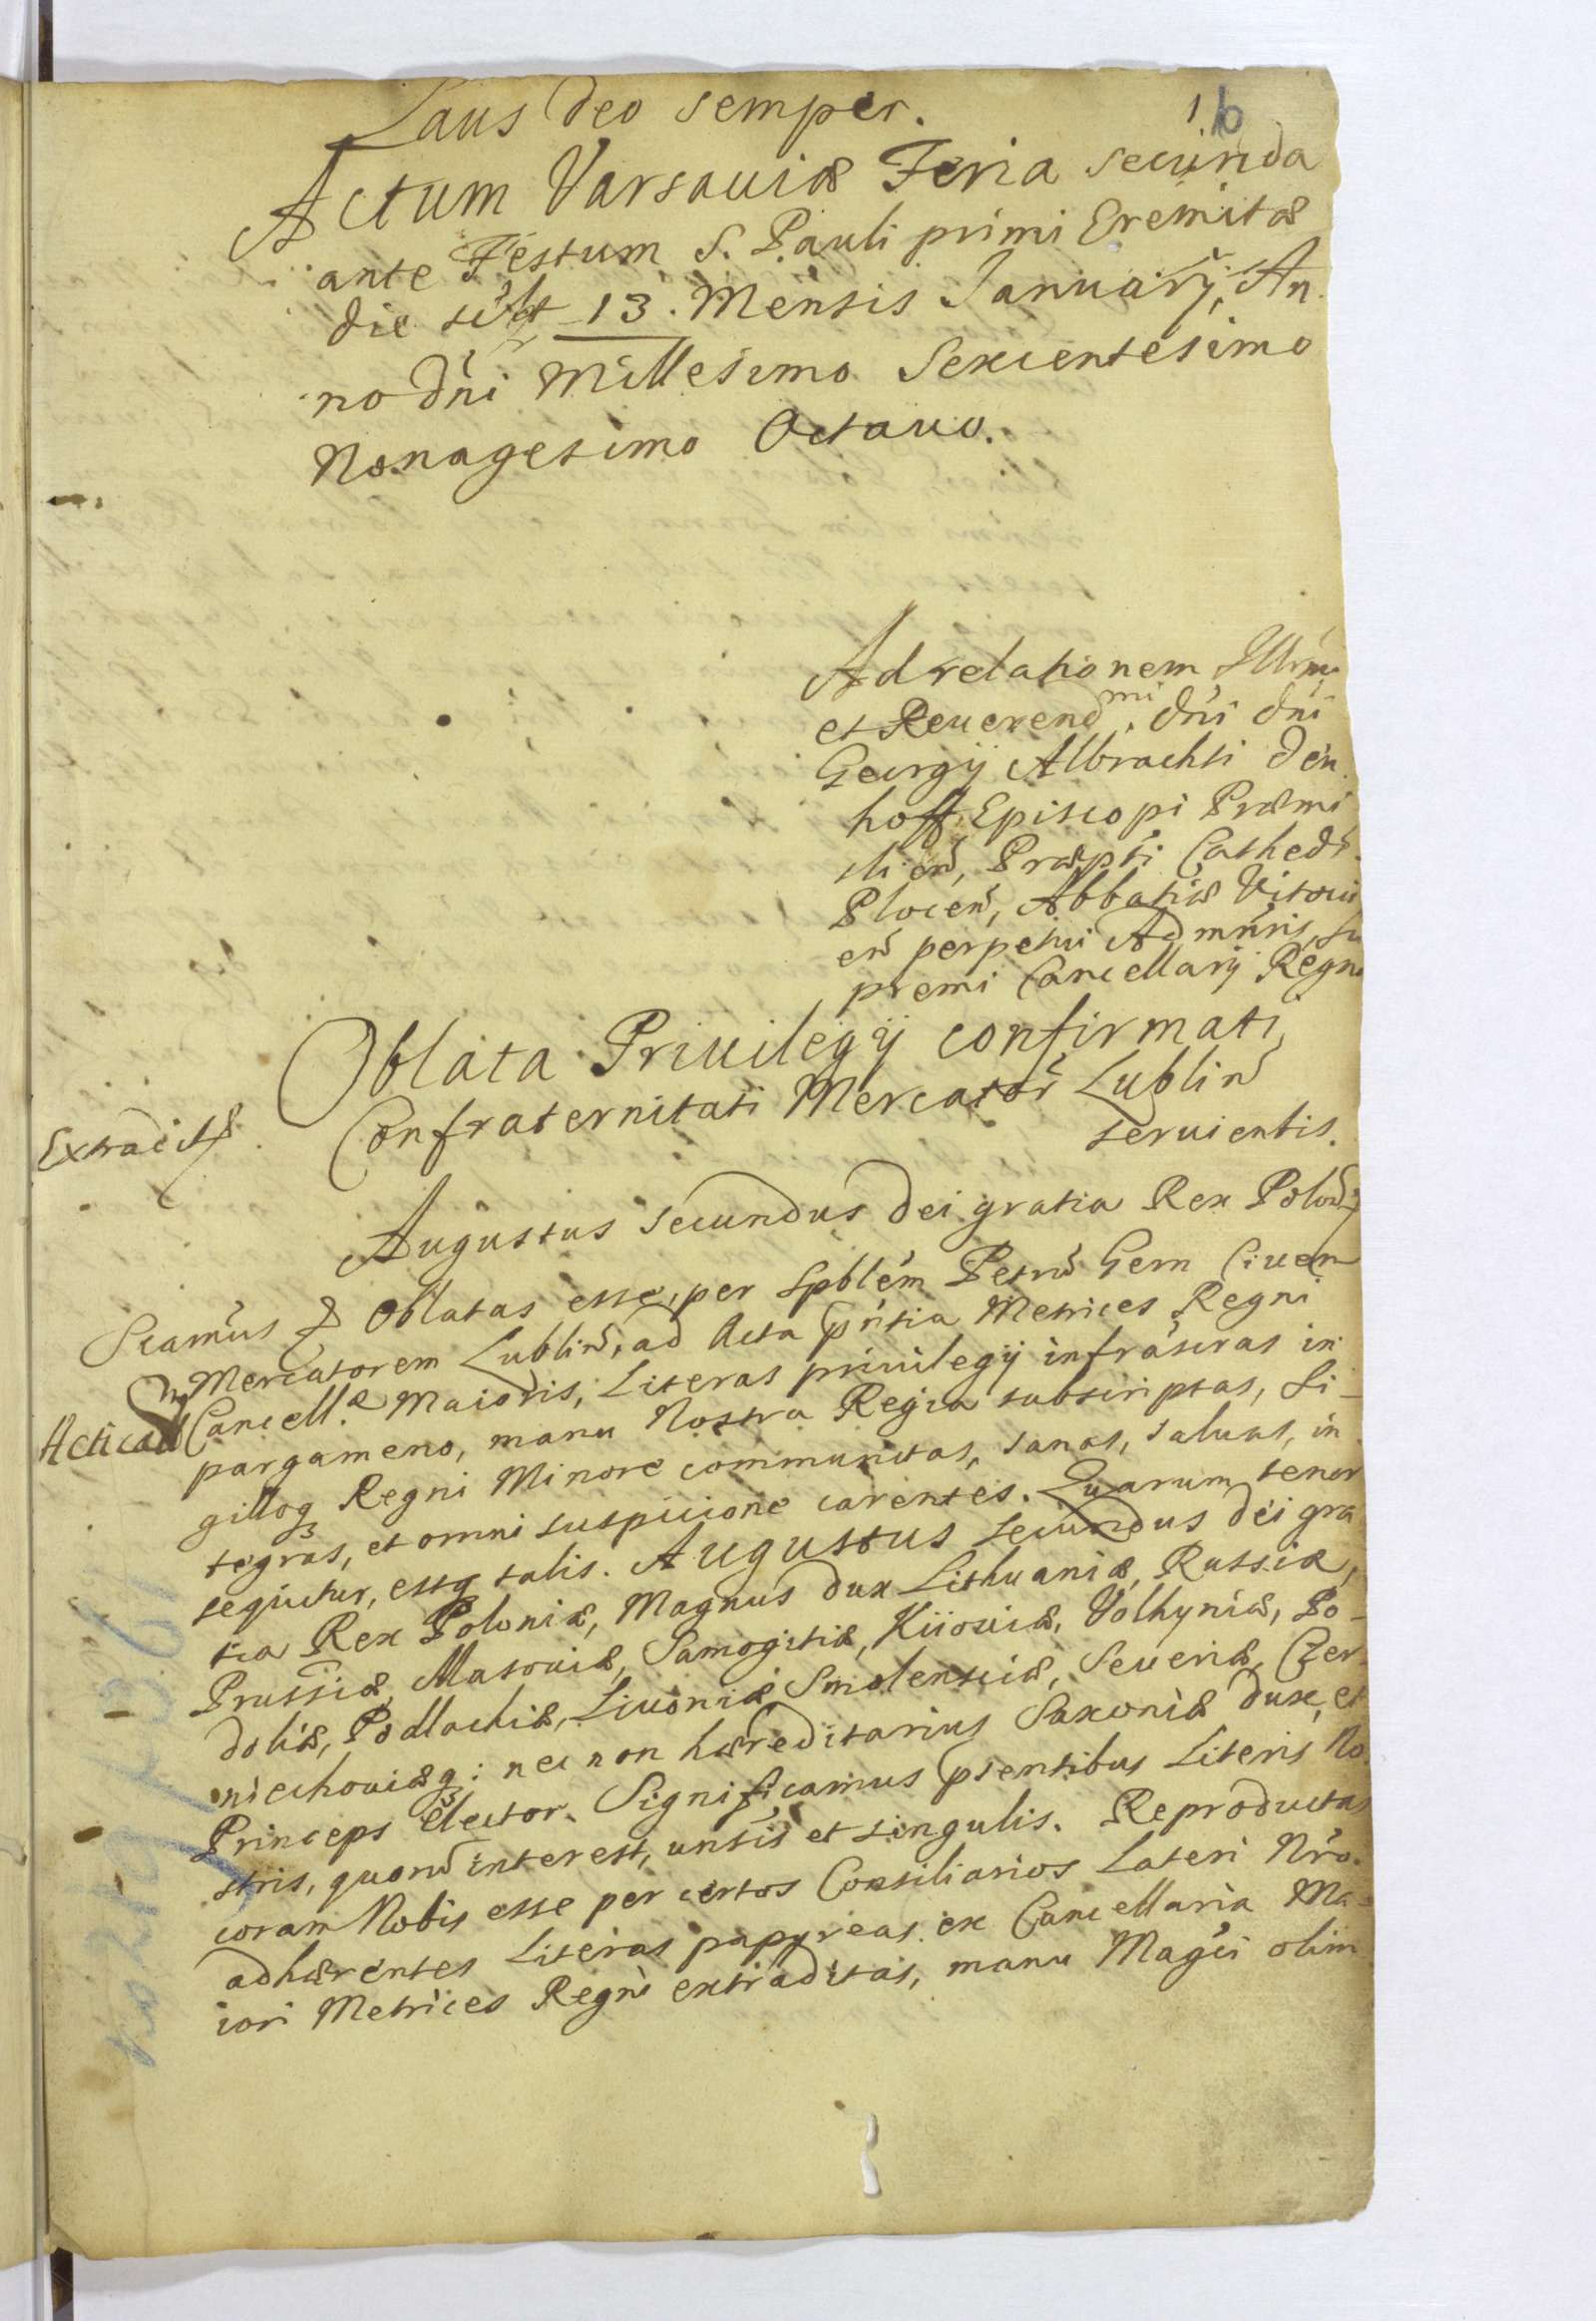 Laus Deo semper.
1. b
Actum Varsauiæ Feria secunda
ante Festum S. Pauli primi Eremitæ
die scilt 13. Mensis Januarÿ, An
no Dni Millesimo Sexcentesimo
Nonagesimo Octauo.
Ad relationem Illrmi
et Reuerend mi. Dni Dni
Georgÿ Albrachti Den
hoff Episcopi Præmi
slien, Præpti Cathedr.
Plocen, Abbatiæ Vitouien
en perpetui Admnris, Su
premi Cancellarÿ Regni
Oblata Priuilegÿ confirmati
Confraternitati Mercator Lublin
seruientis.
Extradit
Augustus Secundus Dei gratia Rex Polon
Scamus & Oblatas esse, per Spblem Petru Gern Ciuem
Mercatorem Lublin, ad Acta pntia Metrices Regni
Cancell. Maioris, Literas priuilegÿ infrascras in
Acticat
pargameno, manu Nostra Regia subscriptas, Si-
gilloq Regni Minore communitas, sanas, saluas, in
tegras, et omni suspicione carentes. Quarum tenor
sequitur, estq talis. Augustus Secundus Dei gra
tia Rex Poloniæ, Magnus Dux Lithuaniæ, Russiæ,
Prussiæ, Masouiæ, Samogitiæ, Kiiouiæ, Volhyniæ, Po-
doliæ, Podlachiæ, Liuoniæ, Smolensciæ, Seueriæ, Czer-
niechouiæq: nec non hæreditarius Saxoniæ Dux, et
Princeps Elector. Significamus psentibus Literis No
stris, quoru interest, unsis et singulis. Reproductas
coram Nobis esse per certos Consiliarios Lateri Nro
adhærentes Literas papyreas ex Cancellaria Ma-
iori Metrices Regni extraditas, manu Magci olim